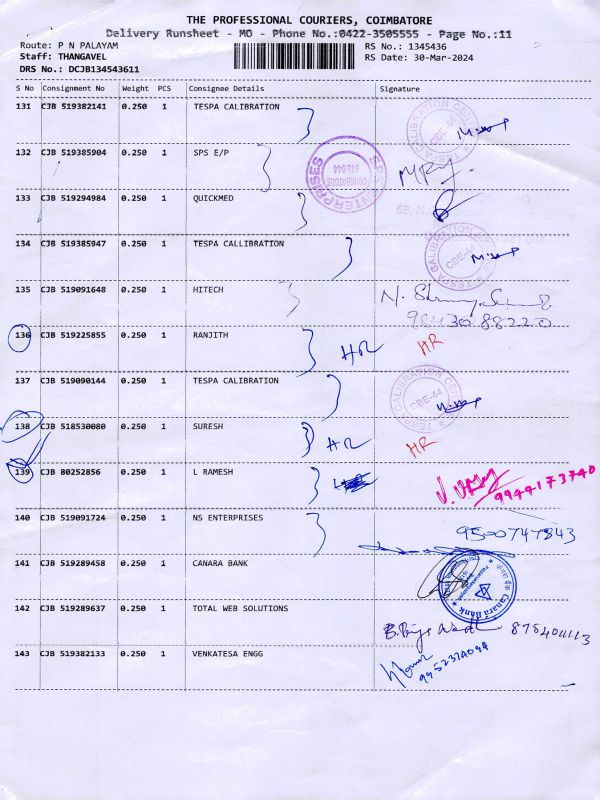 THE PROFESSIONAL COURIERS, COIMBATORE
Delivery Runsheet - MO - Phone No.:0422-3505555 - Page No.:11
Route: P N PALAYAM RS No.: 1345436
Staff: THANGAVEL RS Date: 30-Mar-2024
DRS No.: DCJB134543611
S No Consignment No Weight PCS Consignee Details Signature
131 CJB 519382141 0.250 1 TESPA CALIBRATION
TESPA CALIBRATION CBE-44
132 CJB 519385904 0.250 1 SPS E/P
SPS ENTERPRISES COIMBATORE 641044
133 CJB 519294984 0.250 1 QUICKMED
134 CJB 519385947 0.250 1 TESPA CALLIBRATION
TESPA CALIBRATION CBE-44
135 CJB 519091648 0.250 1 HITECH
98430 88220
136 CJB 519225855 0.250 1 RANJITH HR HR
137 CJB 519090144 0.250 1 TESPA CALIBRATION
TESPA CALIBRATION CBE-44
138 CJB 518530080 0.250 1 SURESH HR HR
139 CJB 80252856 0.250 1 L RAMESH
9944173740
140 CJB 519091724 0.250 1 NS ENTERPRISES
9500747343
141 CJB 519289458 0.250 1 CANARA BANK
Canara Bank
142 CJB 519289637 0.250 1 TOTAL WEB SOLUTIONS
143 CJB 519382133 0.250 1 VENKATESA ENGG
9952374099